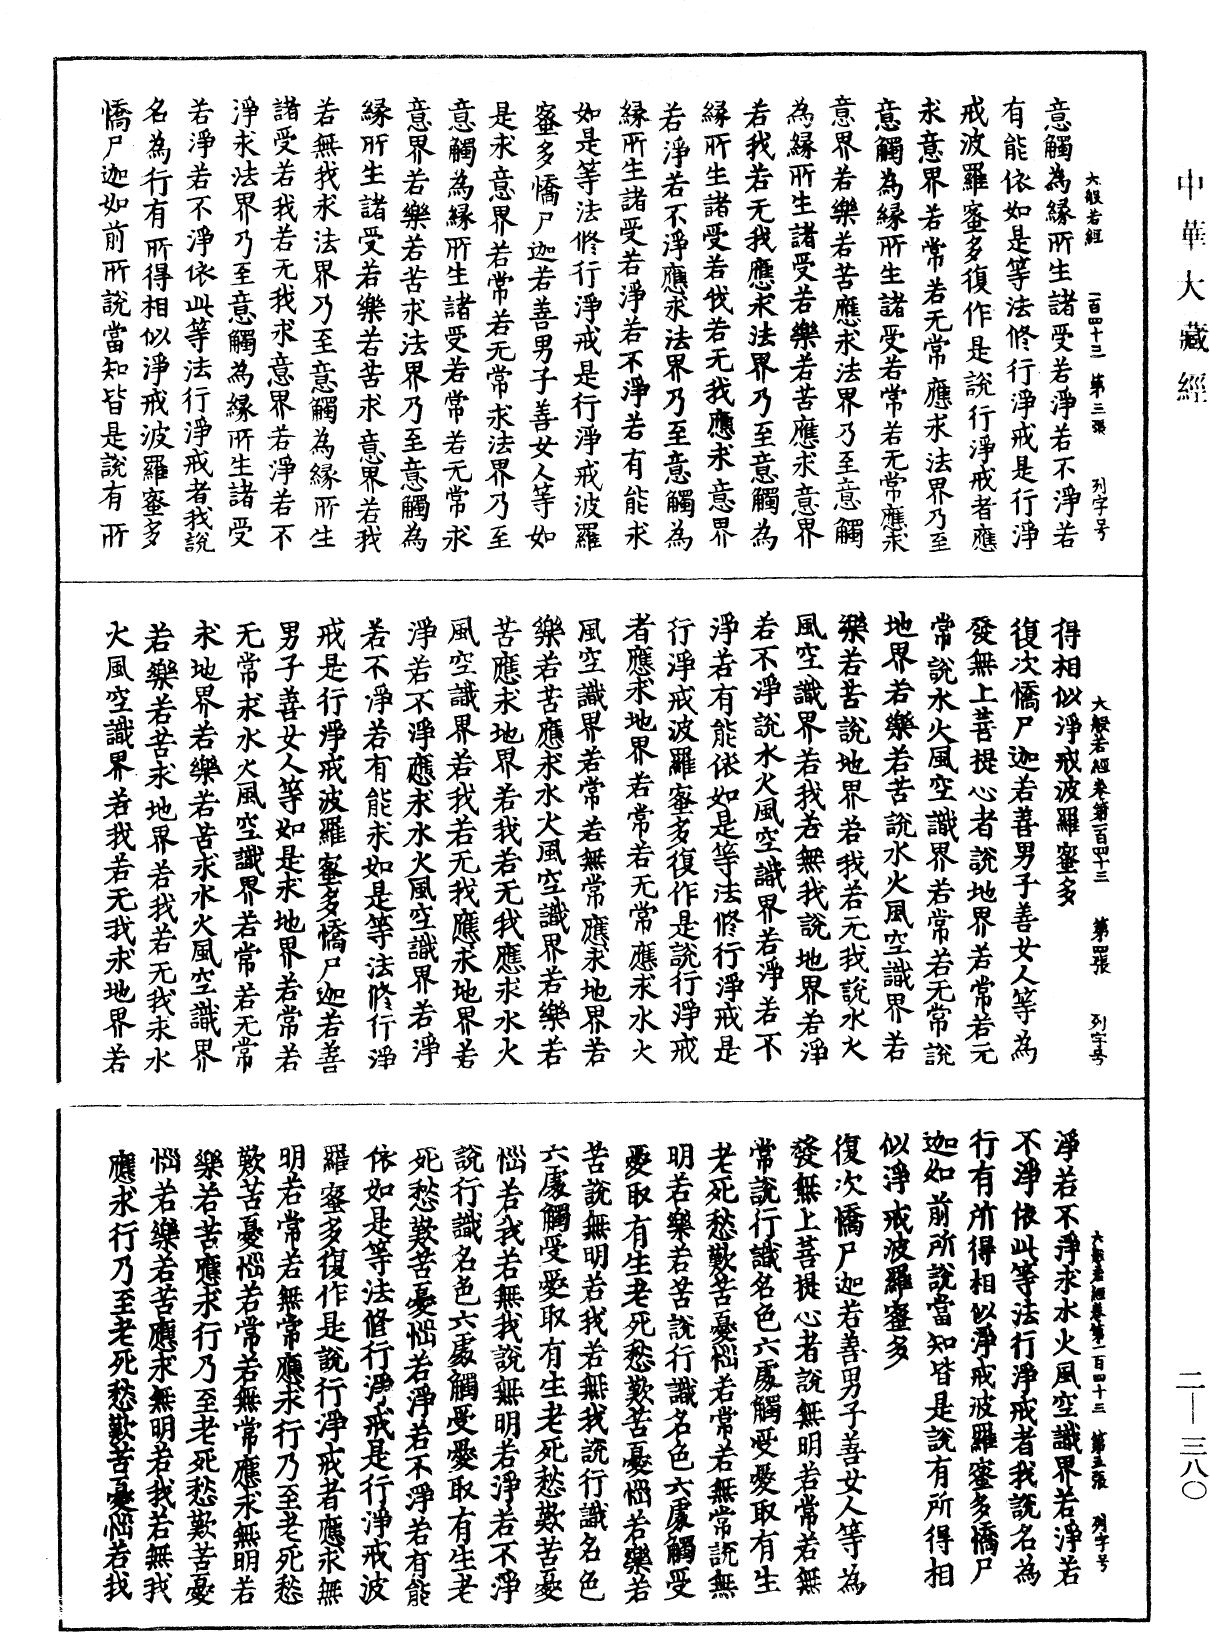 中華大藏經
二—三八〇
大般若經 一百四十三 第三張 列字号
意觸為緣所生諸受若淨若不淨若
有能依如是等法修行淨戒是行淨
戒波羅蜜多復作是說行淨戒者應
求意界若常若无常應求法界乃至
意觸為緣所生諸受若常若无常應求
意界若樂若苦應求法界乃至意觸
為緣所生諸受若樂若苦應求意界
若我若无我應求法界乃至意觸為
緣所生諸受若我若无我應求意界
若淨若不淨應求法界乃至意觸為
緣所生諸受若淨若不淨若有能求
如是等法修行淨戒是行淨戒波羅
蜜多憍尸迦若善男子善女人等如
是求意界若常若无常求法界乃至
意觸為緣所生諸受若常若无常求
意界若樂若苦求法界乃至意觸為
緣所生諸受若樂若苦求意界若我
若無我求法界乃至意觸為緣所生
諸受若我若无我求意界若淨若不
淨求法界乃至意觸為緣所生諸受
若淨若不淨依此等法行淨戒者我說
名為行有所得相似淨戒波羅蜜多
憍尸迦如前所說當知皆是說有所
大般若經卷第一百四十三 第四張 列字号
得相似淨戒波羅蜜多
復次憍尸迦若善男子善女人等為
發無上菩提心者說地界若常若无
常說水火風空識界若常若无常說
地界若樂若苦說水火風空識界若
樂若苦說地界若我若无我說水火
風空識界若我若無我說地界若淨
若不淨說水火風空識界若淨若不
淨若有能依如是等法修行淨戒是
行淨戒波羅蜜多復作是說行淨戒
者應求地界若常若无常應求水火
風空識界若常若無常應求地界若
樂若苦應求水火風空識界若樂若
苦應求地界若我若无我應求水火
風空識界若我若无我應求地界若
淨若不淨應求水火風空識界若淨
若不淨若有能求如是等法修行淨
戒是行淨戒波羅蜜多憍尸迦若善
男子善女人等如是求地界若常若
无常求水火風空識界若常若无常
求地界若樂若苦求水火風空識界
若樂若苦求地界若我若无我求水
火風空識界若我若无我求地界若
大般若經卷第一百四十三 第五張 列字号
淨若不淨求水火風空識界若淨若
不淨依此等法行淨戒者我說名為
行有所得相似淨戒波羅蜜多憍尸
迦如前所說當知皆是說有所得相
似淨戒波羅蜜多
復次憍尸迦若善男子善女人等為
發無上菩提心者說無明若常若無
常說行識名色六處觸受愛取有生
老死愁歎苦憂惱若常若無常說無
明若樂若苦說行識名色六處觸受
愛取有生老死愁歎苦憂惱若樂若
苦說無明若我若無我說行識名色
六處觸受愛取有生老死愁歎苦憂
惱若我若無我說無明若淨若不淨
說行識名色六處觸受愛取有生老
死愁歎苦憂惱若淨若不淨若有能
依如是等法修行淨戒是行淨戒波
羅蜜多復作是說行淨戒者應求無
明若常若無常應求行乃至老死愁
歎苦憂惱若常若無常應求無明若
樂若苦應求行乃至老死愁歎苦憂
惱若樂若苦應求無明若我若無我
應求行乃至老死愁歎苦憂惱若我